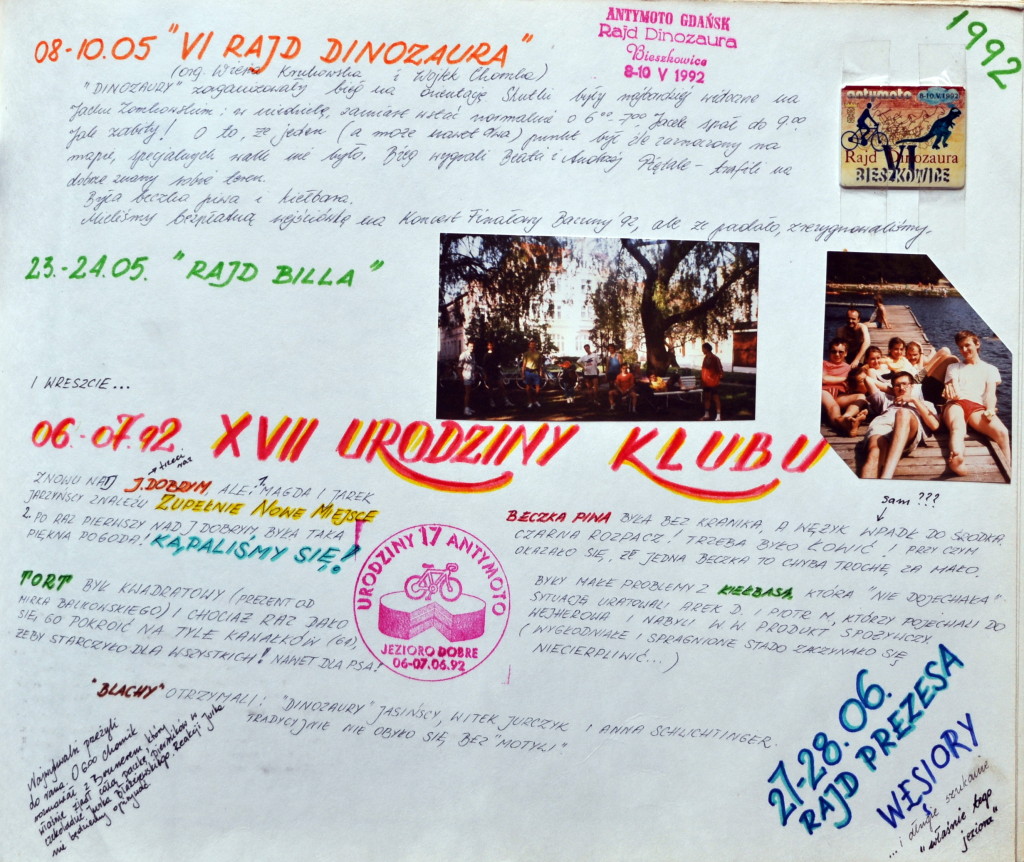 1992
08-10.05 "VI RAJD DINOZAURA"
ANTYMOTO GDAŃSK
Rajd Dinozaura
Bieszkowice
8-10 V 1992
(org. Wiesia i Wojtek Chomba)
"DINOZAURY" zorganizowały bieg na orientację. Skutki były najbardziej widoczne na
Jacku Zombowskim: w niedzielę, zamiast wstać normalnie o 6.00-7.00 Jacek spał do 9.00
Jak zabity! O to, że jeden (a może nawet dwa) punkt był źle zaznaczony na
mapie, specjalnych walk nie było. Bieg wygrali Beata i Andrzej Piętale - trafili na
dobrze znany sobie teren.
Była beczka piwa i kiełbasa.
Mieliśmy bezpłatną wejściówkę na Koncert Finałowy '92, ale że padało, zrezygnowaliśmy.
antymoto
8-10.V.1992
VI
Rajd Dinozaura
BIESZKOWICE
23.-24.05. "RAJD BILLA"
I WRESZCIE...
06.-07.92 XVII URODZINY KLUBU
trzeci raz
ZNOWU NAD J.DOBRYM, ALE: 1. MAGDA I JAREK
JARZYŃSCY ZNALEŹLI ZUPEŁNIE NOWE MIEJSCE
2. PO RAZ PIERWSZY NAD J DOBRYM, BYŁA TAKA
PIĘKNA POGODA! KĄPALIŚMY SIĘ!
TORT BYŁ KWADRATOWY (PREZENT OD
MIRKA BAŁKOWSKIEGO) I CHOCIAŻ RAZ DAŁO
SIĘ GO POKROIĆ NA TYLE KAWAŁKÓW (60),
ŻEBY STARCZYŁO DLA WSZYSTKICH! NAWET DLA PSA!
URODZINY 17 ANTYMOTO
JEZIORO DOBRE
06-07.06.92
sam ???
BECZKA PIWA BYŁA BEZ KRANIKA, A WĘŻYK WPADŁ DO ŚRODKA.
CZARNA ROZPACZ! TRZEBA BYŁO ŁOWIĆ I PRZY CZYM
OKAZAŁO SIĘ, ŻE JEDNA BECZKA TO CHYBA TROCHĘ ZA MAŁO.
BYŁY MAŁE PROBLEMY Z KIEŁBASĄ, KTÓRA "NIE DOJECHAŁA".
SYTUACJĘ URATOWALI AREK D. I PIOTR M, KTÓRZY POJECHALI DO
WEJHEROWA I NABYLI W W PRODUKT SPOŻYWCZY.
(WYGŁODNIAŁE I SPRAGNIONE STADO ZACZYNAŁO SIĘ
NIECIERPLIWIĆ...)
"BLACHY" OTRZYMALI: "DINOZAURY" JASIŃSCY, WITEK JURCZYK I ANNA SCHLICHTINGER.
TRADYCYJNIE NIE OBYŁO SIĘ BEZ "MOTYLI".
Najwytrwalsi przeżyli
do rana. O 6.00 chomik
rozmawiał z Brunerem, który
właśnie zjadł całą paczkę pierników w
czekoladzie Jurka Błażejowskiego. Reakcji Jurka
nie będziemy opisywać.
27-28.06.
RAJD PREZESA
WĘSIORY
...i długie szukanie
"właśnie tego
jeziora"